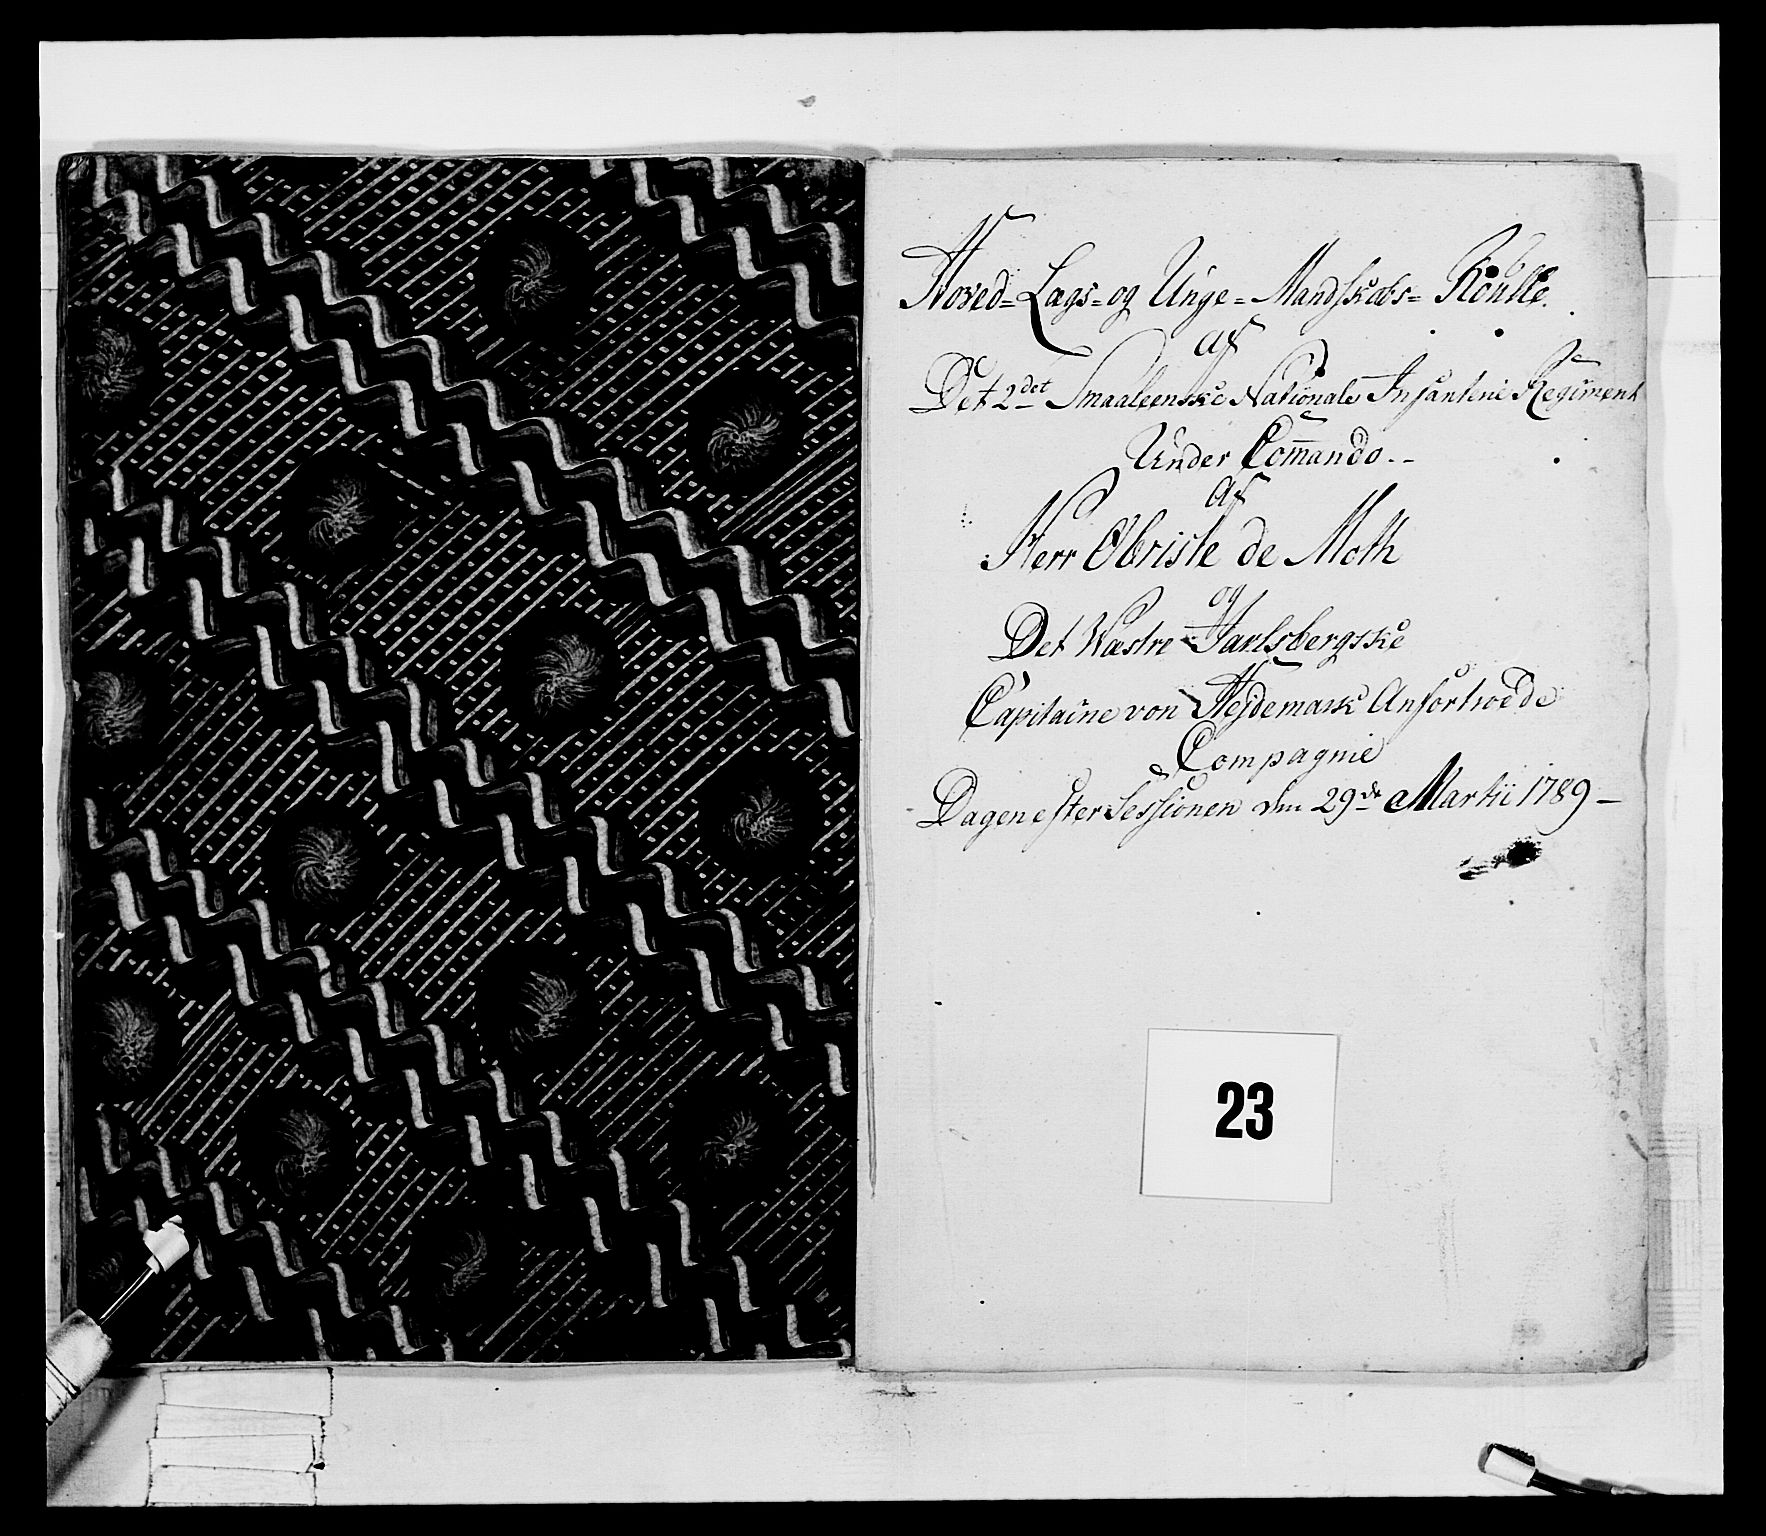 Hoved-Lægs-og Unge-Mandskabs-Roulle.
af
Det 2det Smaaleenske Nationale Infanterie Regiment
Under Com̄ando.-
af
Herr Obriste de Moth
og
Det Wæstre Jarlsbergske
Capitaine von Hejdemark Anfortroede
Compagnie
Dagen efter Sessionen den 29de Martii 1789-
23